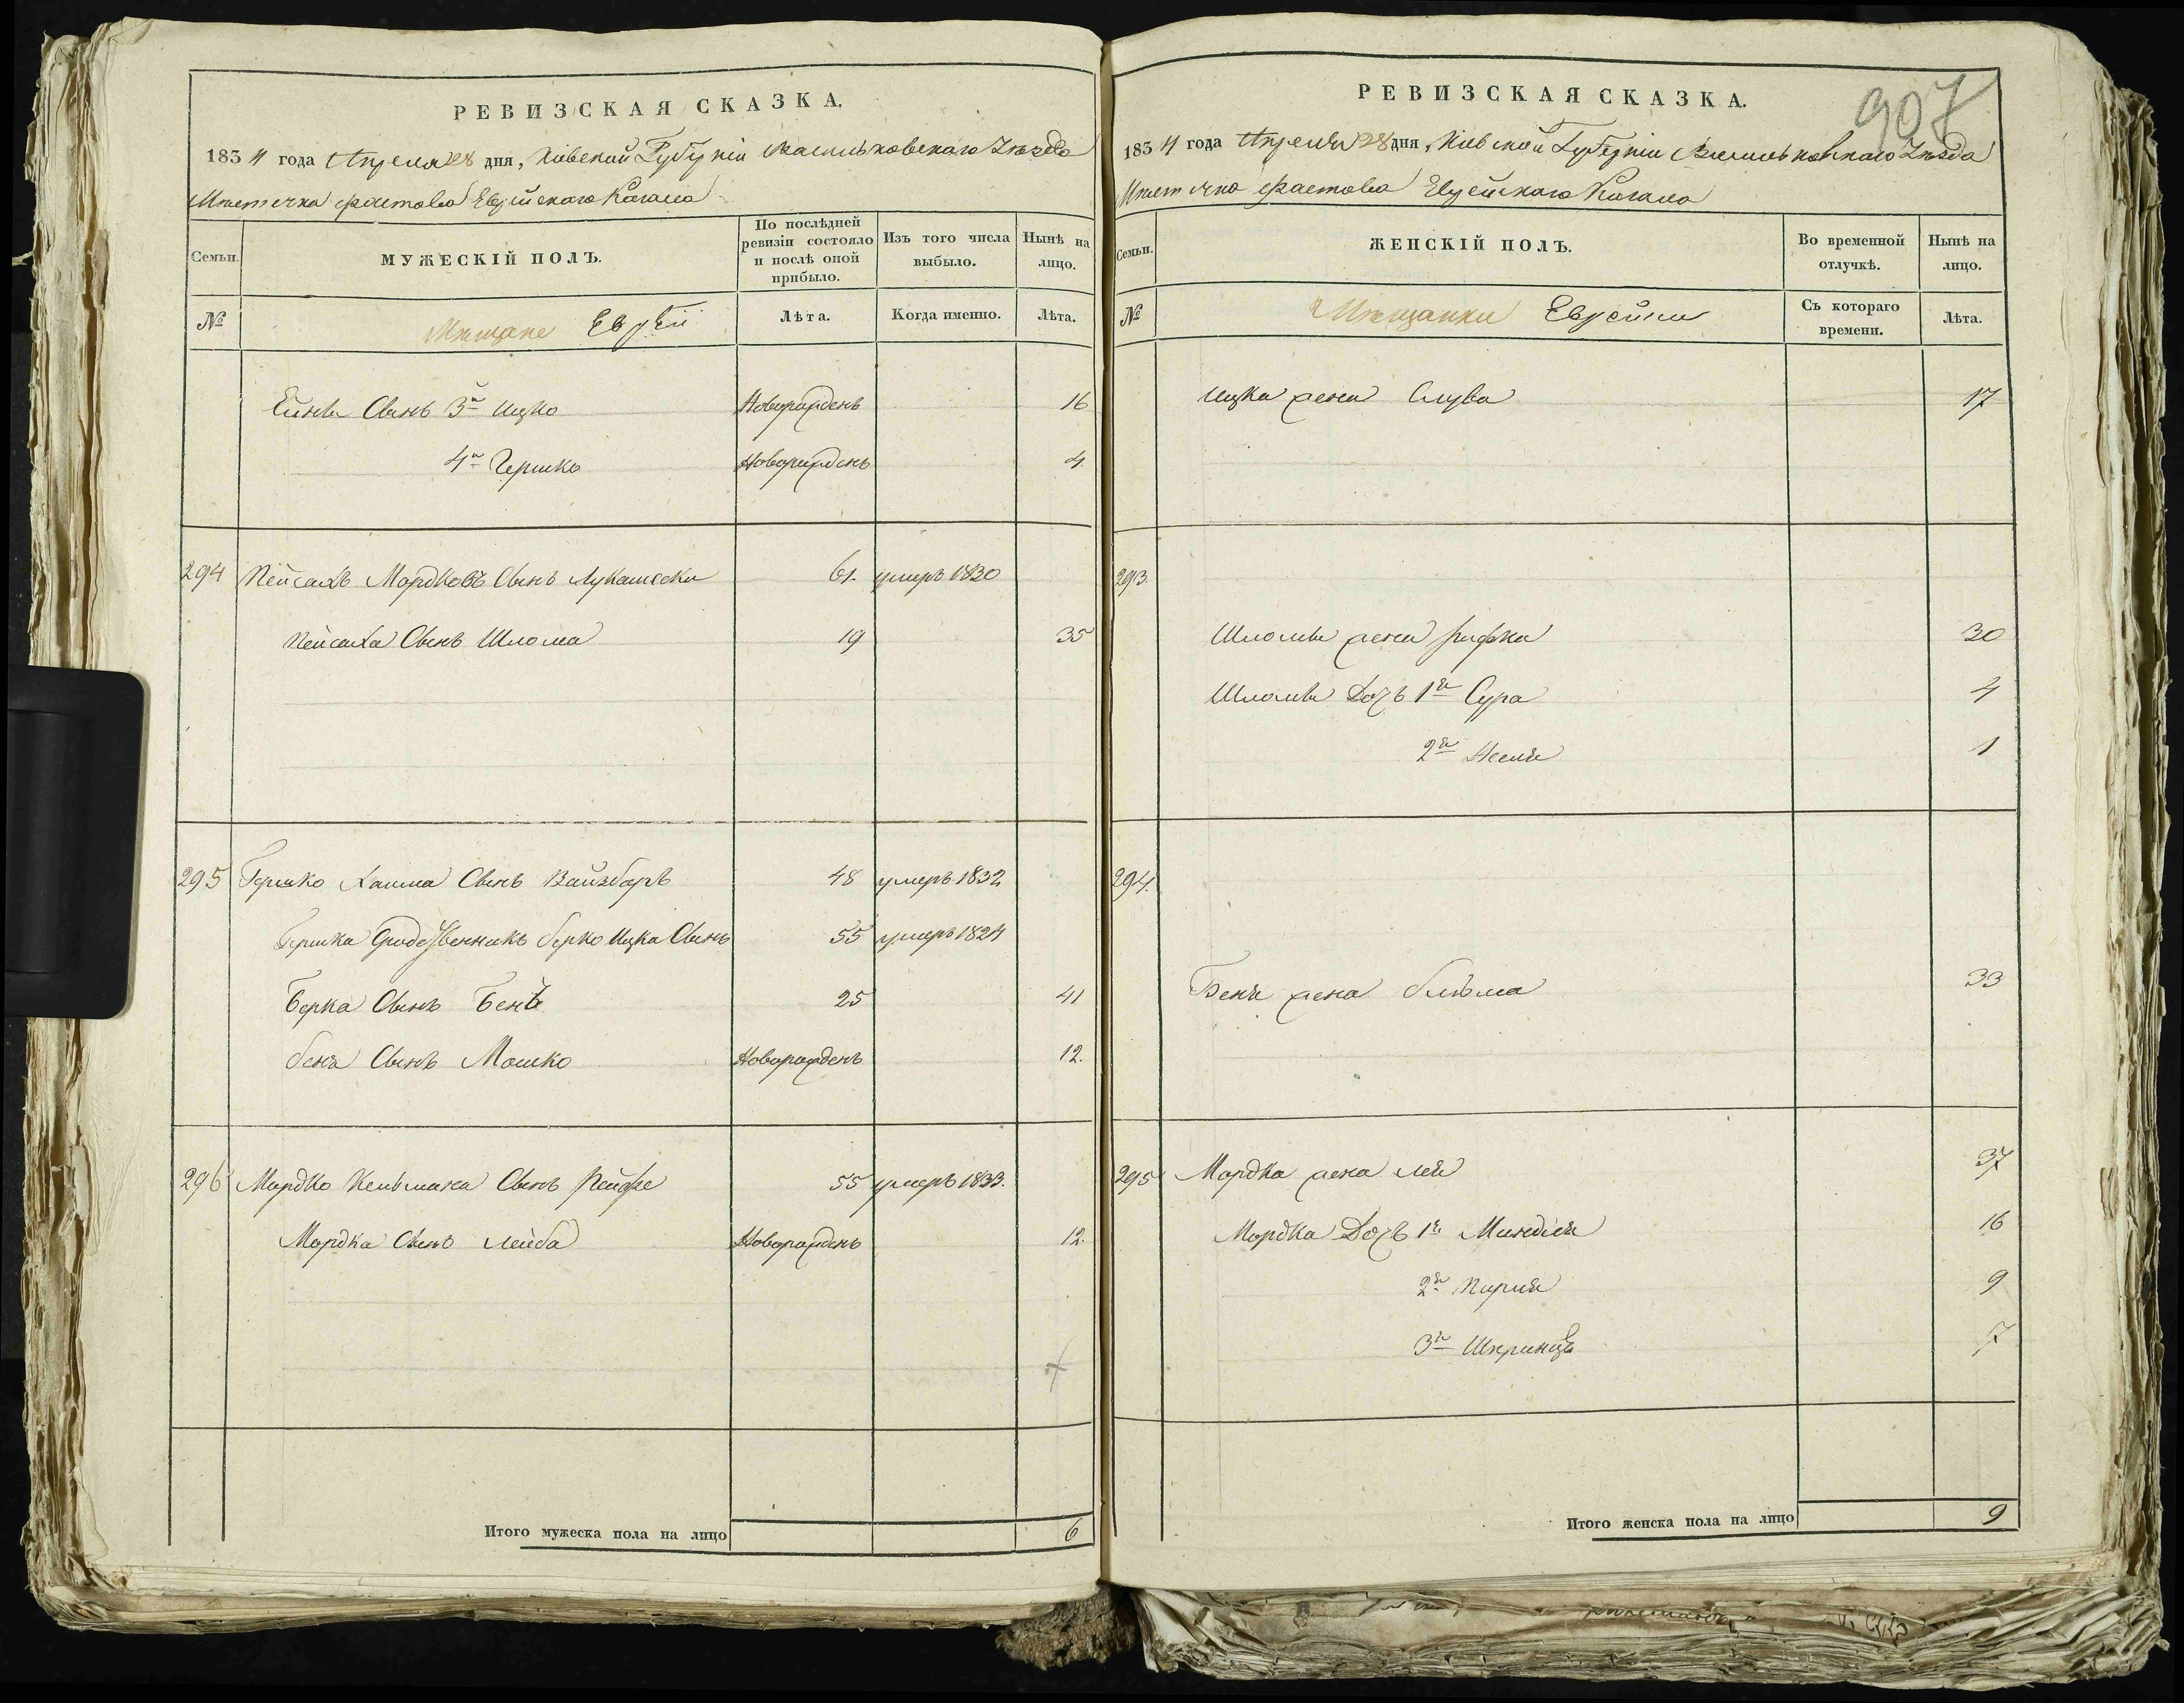 РЕВИЗСКАЯ СКАЗКА.
1834 года Апреля 28 дня, Кіевской Губерніи Васильковскаго Уѣзда
Мѣстечка Фастова Еврейскаго Кагала
Семьи.
МУЖЕСКІЙ ПОЛЪ.
По послѣдней ревизіи состояло и послѣ оной прибыло.
Изъ того числа выбыло.
Нынѣ на лицо.
№
Мѣщане Евреи
Лѣта.
Когда именно.
Лѣта.
Сынъ 3й Ицко Новорожденъ 16
4й Гершко Новорожденъ 4
294 Пейсахъ Мордковъ Сынъ 61. умеръ 1830
Пейсаха Сынъ Шлома 19 35
295 Гершко Хаима Сынъ Вайзбаръ 48 умеръ 1832
Гершка Сродственникъ Берко Ицка Сынъ 55 умеръ 1824
Берка Сынъ Беня 25 41
Беня Сынъ Мошко Новорожденъ 12.
296 Мордко Кельмана Сынъ 55 умеръ 1833.
Мордка Сынъ Лейба Новорожденъ 12.
Итого мужеска пола на лицо 6
907
РЕВИЗСКАЯ СКАЗКА.
1834 года Апреля 28 дня, Кіевской Губерніи Васильковскаго Уѣзда
Мѣстечка Фастова Еврейскаго Кагала
Семьи.
ЖЕНСКІЙ ПОЛЪ.
Во временной отлучкѣ.
Нынѣ на лицо.
№
Мѣщанки Еврейки
Съ котораго времени.
Лѣта.
Ицка жена 17
293.
Шломы жена Рифка 30
Шломы Дочь 1я Сура 4
2я 1
294.
Беня жена 33
295 Мордка жена Лея 37
Мордка Дочь 1я Миндля 16
2я Перля 9
3я Шпринца 7
Итого женска пола на лицо 9